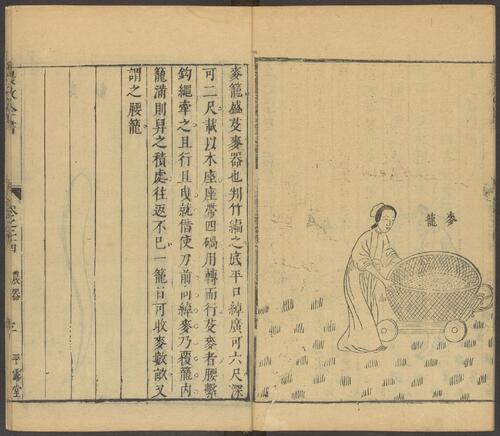 麥籠
麥籠盛芟麥器也判竹編之底平口綽廣可六尺深
可二尺載以木座座帶四碢用轉而行芟麥者腰繫
鈎繩牽之且行且曳就借使刀前向綽麥乃覆籠内
籠滿則舁之積處往返不已一籠日可收麥數畝又
謂之腰籠
農政全書
農器
平露堂